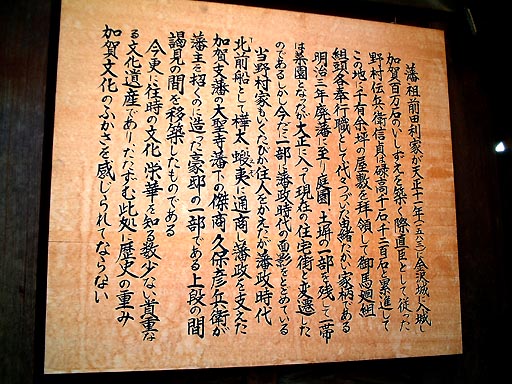 藩祖前田利家が天正十一年(一五八三)に金沢城に入城し
加賀百万石のいしずえを築く際直臣として従った
野村伝兵衛信貞は禄高千石、千二百石と累進して
この地に千有余坪の屋敷を拝領して御馬廻組
組頭各奉行職として代々つづいた由緒たかい家柄である
明治三年廃藩に至り庭園、土塀の一部を残して一帯
は菜園となったが大正に入って現在の住宅街と変遷した
のであるしかし今だ一部は藩政時代の面影をとどめている
当野村家もいくたびか住人をかえたが藩政時代
北前船として樺太、蝦夷に通商し藩政を支えた
加賀支藩の大聖寺藩下の傑商、久保彦兵衛が
藩主を招くのに造った豪邸の一部である上段の間
謁見の間を移築したものである
今更に往時の文化、栄華を知る数少ない貴重な
る文化遺産であり、たたずむ此処に歴史の重み
加賀文化のふかさを感じられてならない